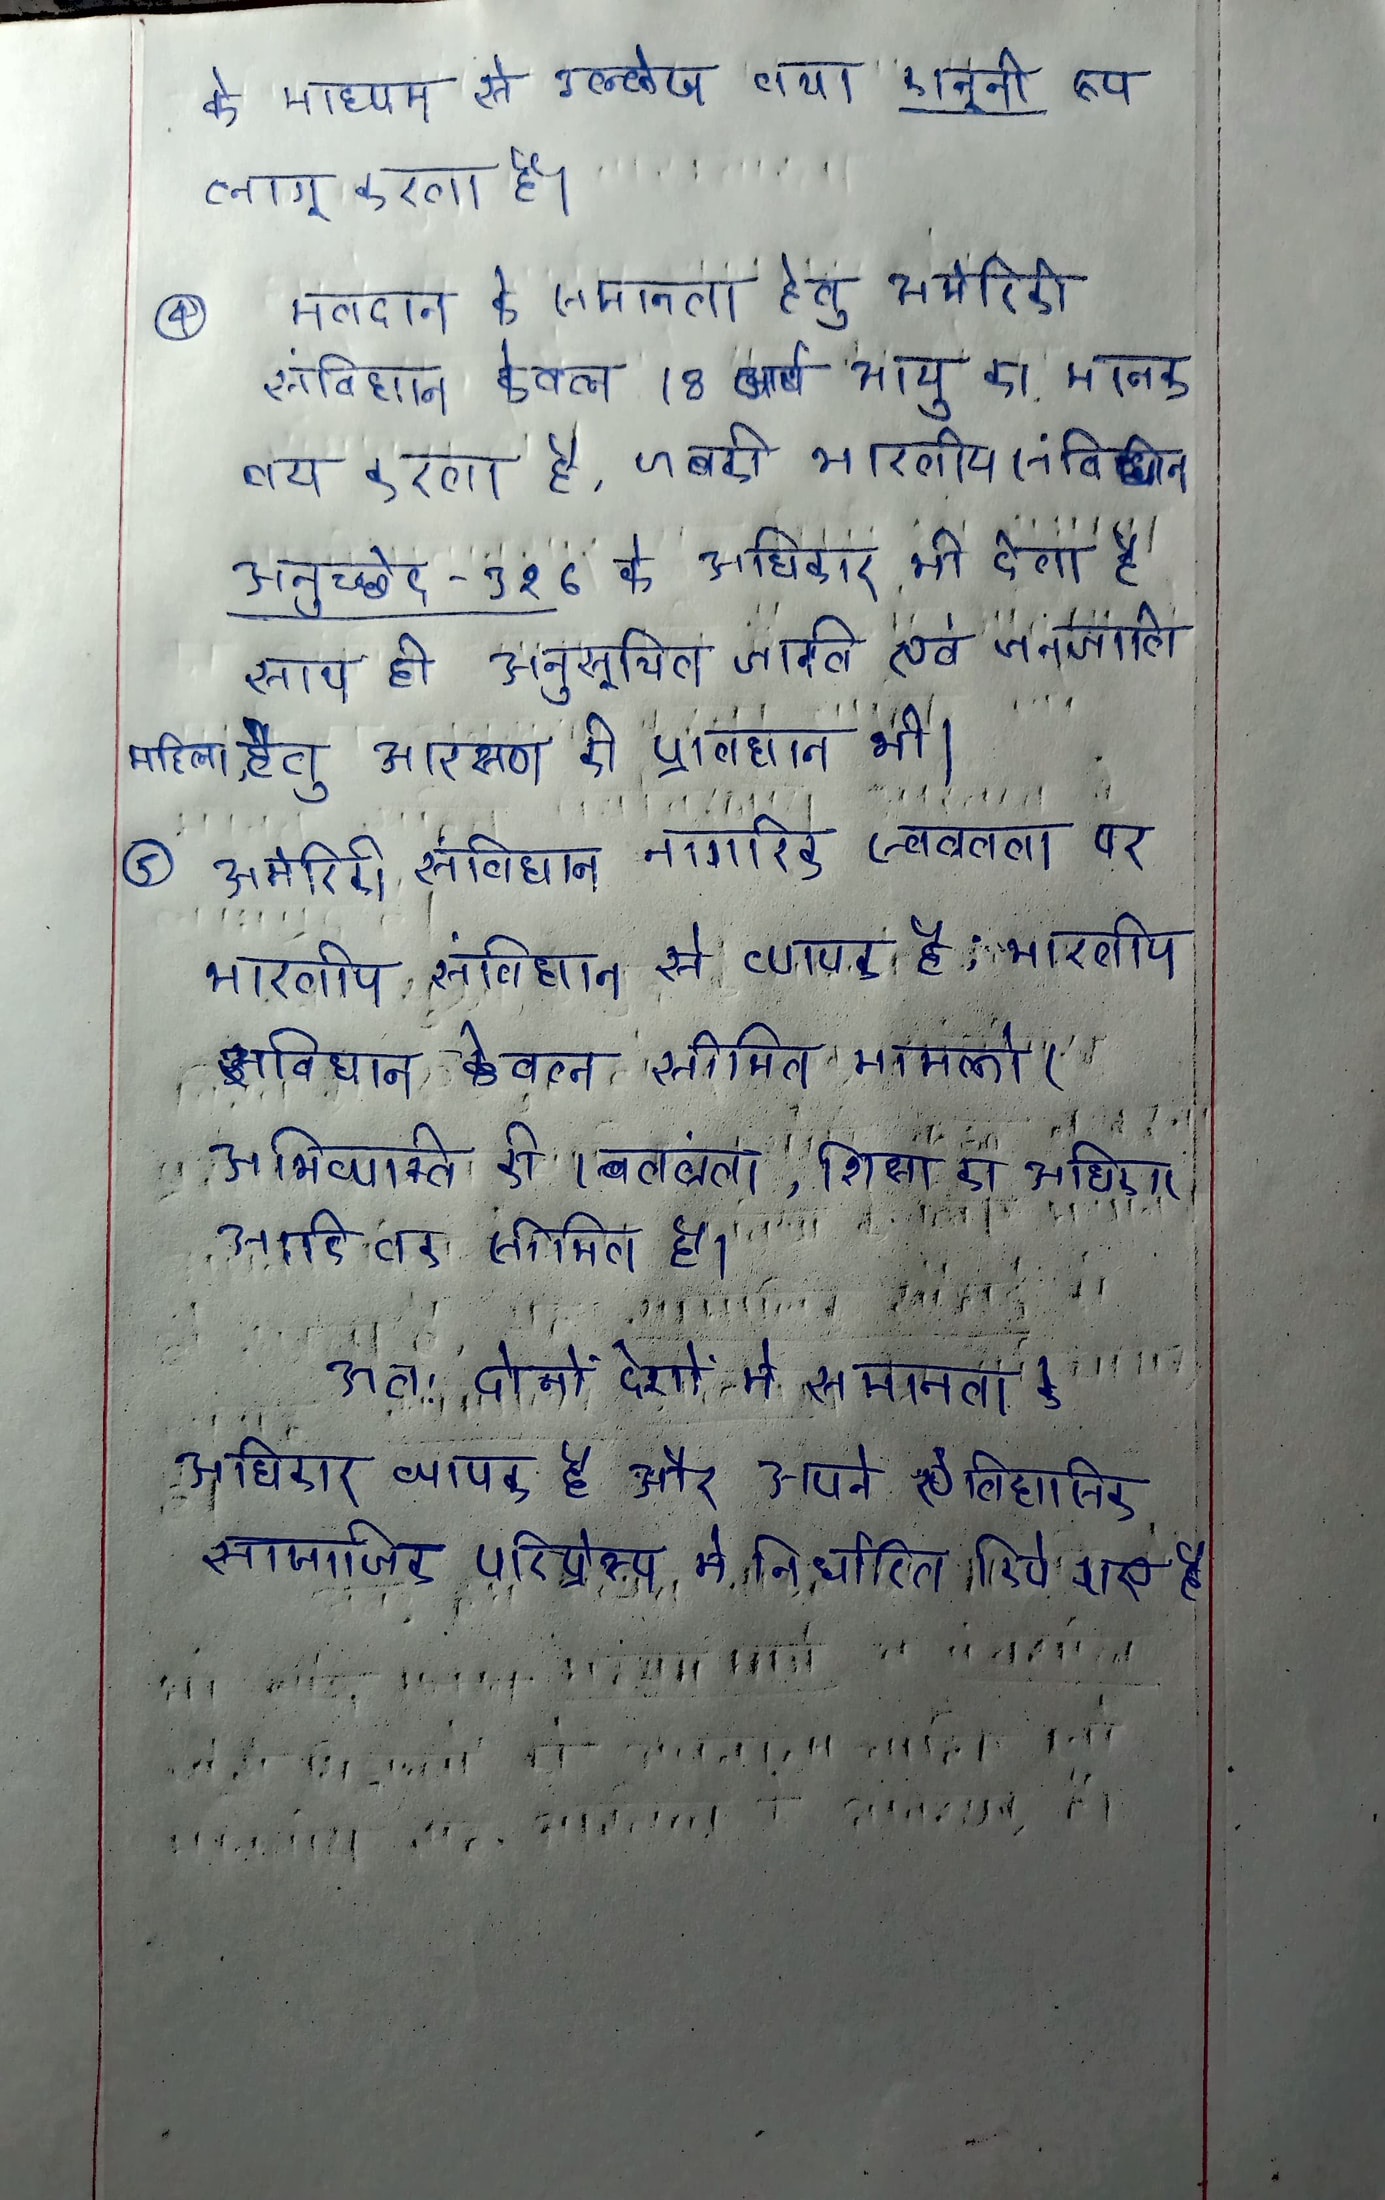 के माध्यम से उल्लेख तथा कानूनी रूप
लागू करता है।
④ मतदान के समानता हेतु अमेरिकी
संविधान केवल 18 वर्ष आयु का मानक
तय करता है, जबकी भारतीय संविधान
अनुच्छेद - 326 के अधिकार भी देता है
साथ ही अनुसूचित जाति एवं जनजाति
महिला, हेतु आरक्षण की प्रावधान भी।
⑤ अमेरिकी संविधान नागरिक स्वतंत्रता पर
भारतीय संविधान से व्यापक है; भारतीय
संविधान केवल सीमित मामलो (
अभिव्यक्ति की स्वतंत्रता, शिक्षा का अधिकार
आदि तक सीमित है।
अतः दोनों देशों मे समानता के
अधिकार व्यापक है और अपने ऐतिहासिक
सामाजिक परिप्रेक्ष्य मे निर्धारित किये गए है